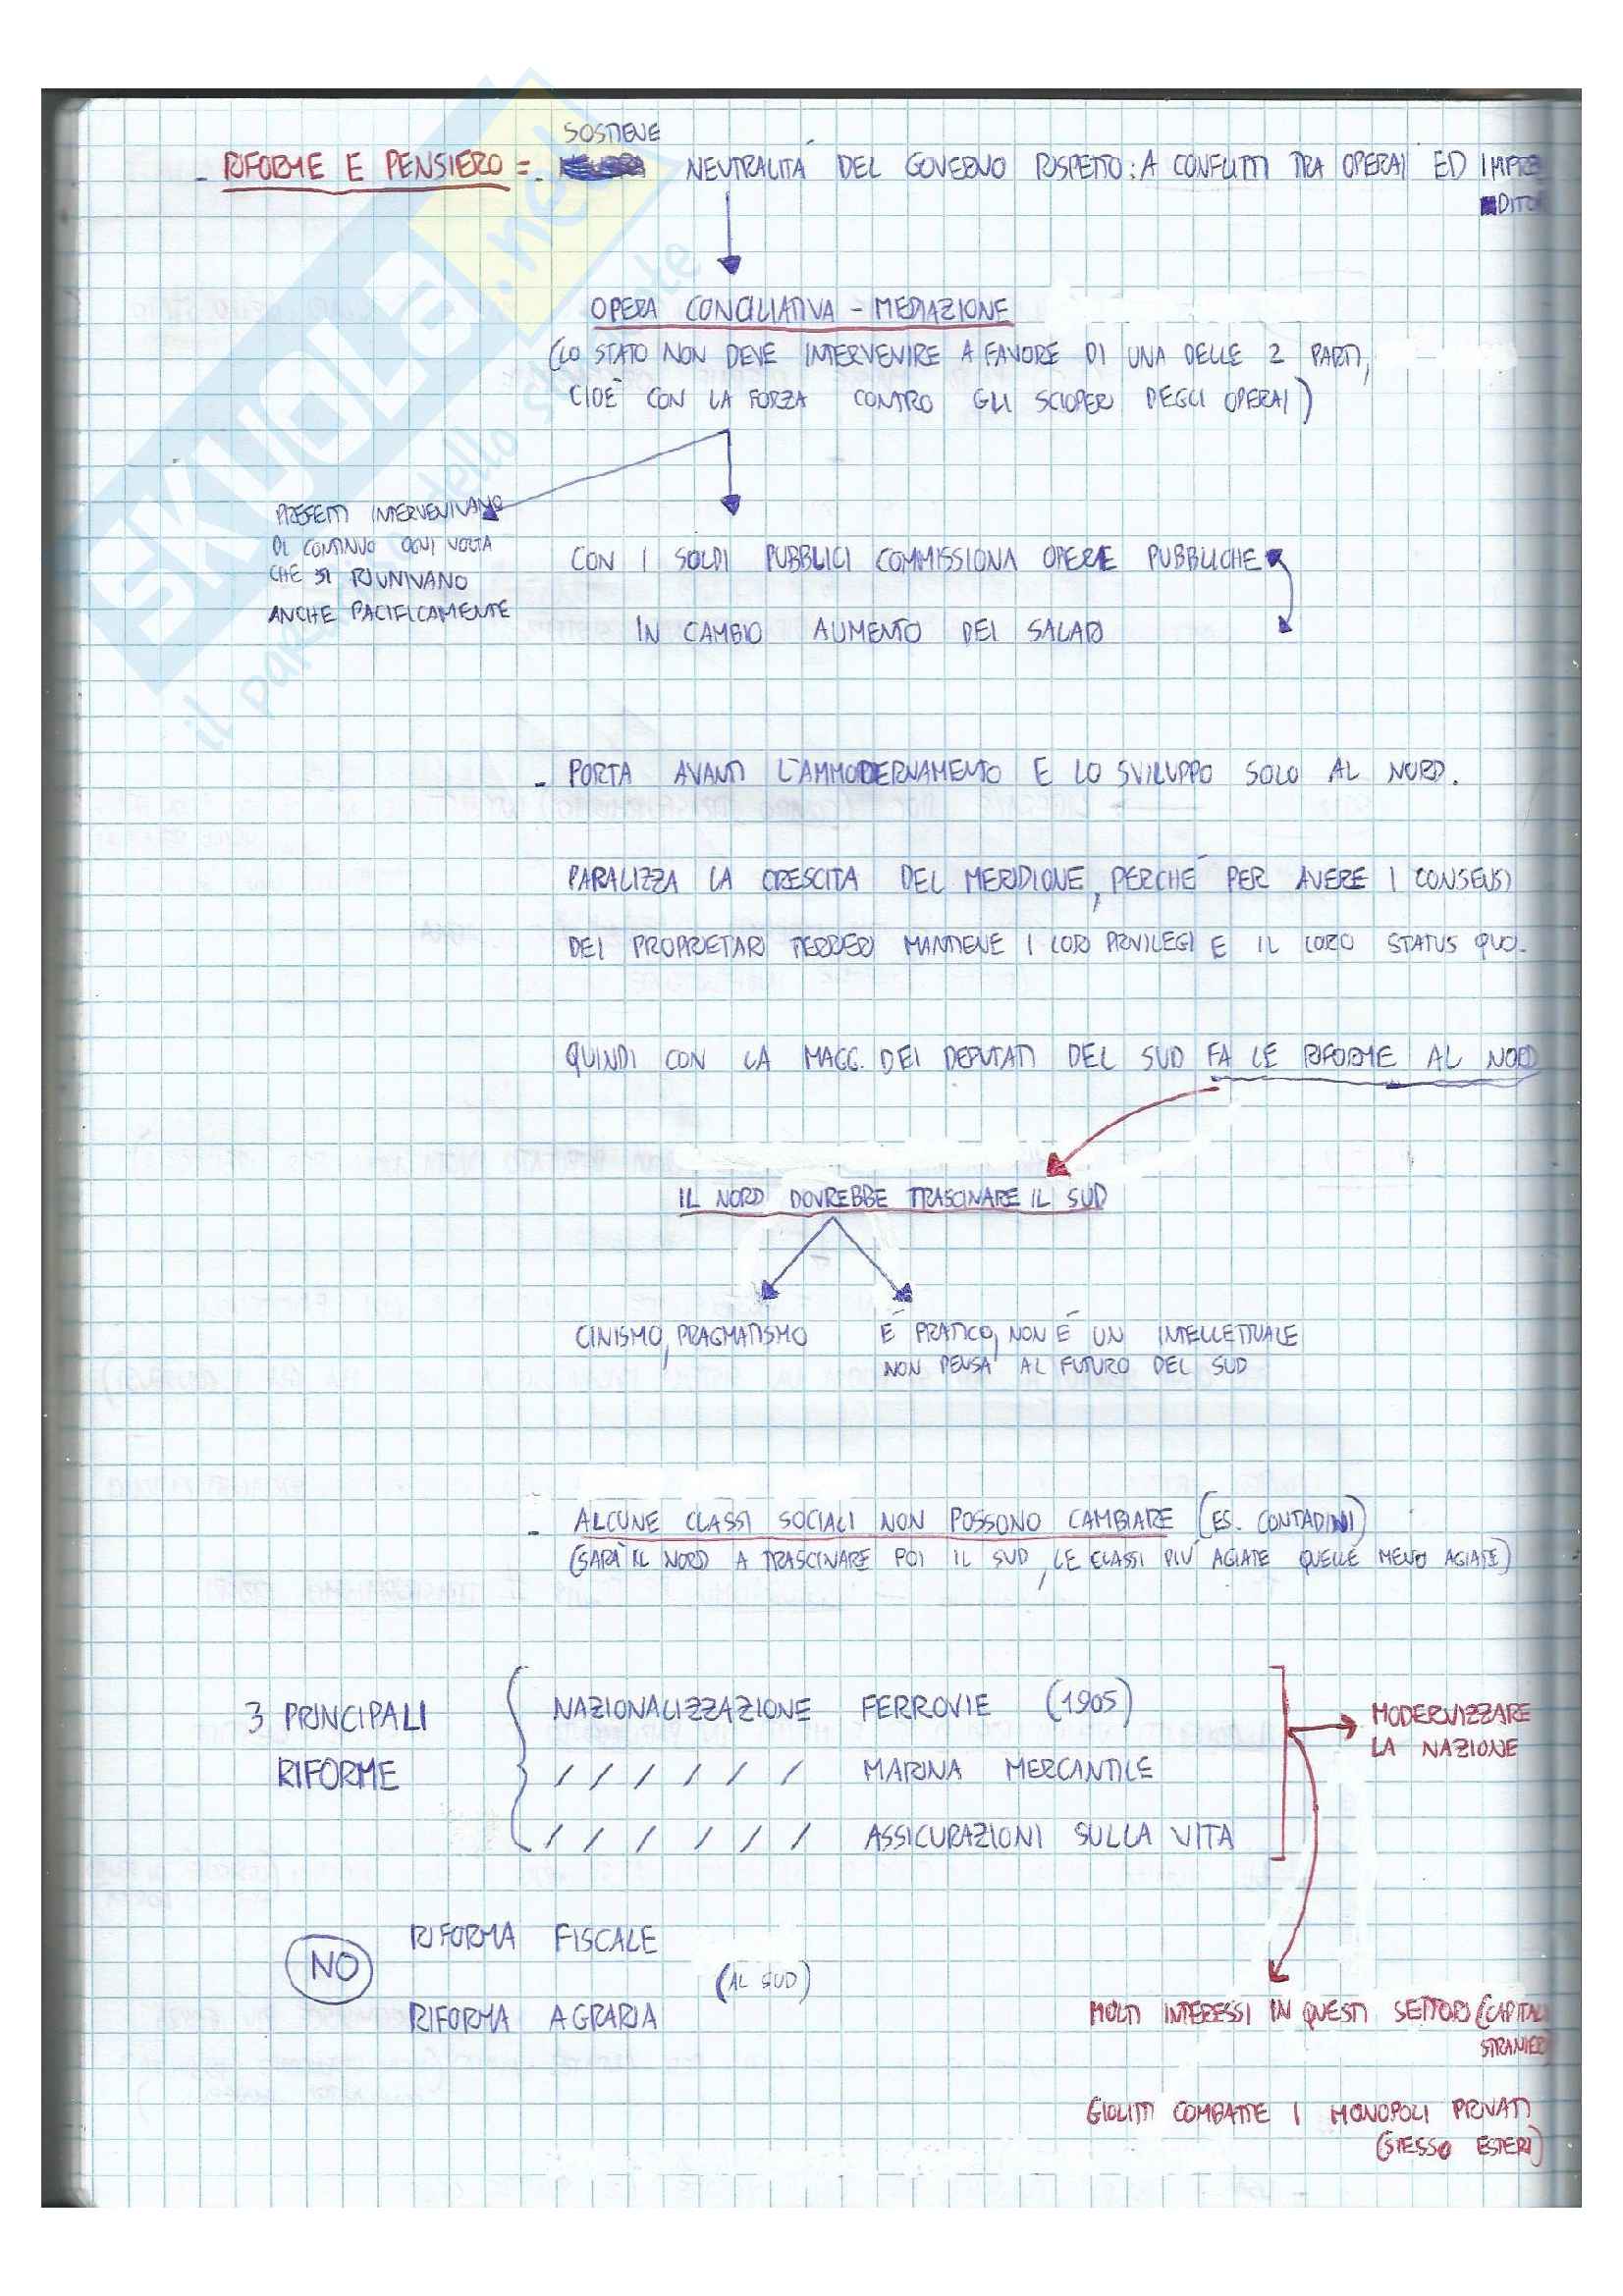 SOSTIENE
- RIFORME E PENSIERO = - NEUTRALITÁ DEL GOVERNO RISPETTO: A CONFLITTI TRA OPERAI ED IMPRE
DITOR
OPERA CONCILIATIVA - MEDIAZIONE
(LO STATO NON DEVE INTERVENIRE A FAVORE DI UNA DELLE 2 PARTI,
CIOÈ CON LA FORZA CONTRO GLI SCIOPERI DEGLI OPERAI)
PREFETTI INTERVENIVANO
DI CONTINUO OGNI VOLTA
CHE SI RIUNIVANO
ANCHE PACIFICAMENTE
CON I SOLDI PUBBLICI COMMISSIONA OPERE PUBBLICHE
IN CAMBIO AUMENTO DEI SALARI
- PORTA AVANTI L'AMMODERNAMENTO E LO SVILUPPO SOLO AL NORD.
PARALIZZA LA CRESCITA DEL MERIDIONE, PERCHÉ PER AVERE I CONSENSI
DEI PROPRIETARI TERRIERI MANTIENE I LORO PRIVILEGI E IL LORO STATUS QUO.
QUINDI CON LA MAGG. DEI DEPUTATI DEL SUD FA LE RIFORME AL NORD
IL NORD DOVREBBE TRASCINARE IL SUD
CINISMO, PRAGMATISMO
É PRATICO, NON É UN INTELLETTUALE
NON PENSA AL FUTURO DEL SUD
- ALCUNE CLASSI SOCIALI NON POSSONO CAMBIARE (ES. CONTADINI)
(SARÀ IL NORD A TRASCINARE POI IL SUD, LE CLASSI PIÚ AGIATE QUELLE MENO AGIATE)
3 PRINCIPALI
RIFORME
NAZIONALIZZAZIONE FERROVIE (1905)
/ / / / / / / MARINA MERCANTILE
/ / / / / / ASSICURAZIONI SULLA VITA
MODERNIZZARE
LA NAZIONE
NO
RIFORMA FISCALE
(AL SUD)
RIFORMA AGRARIA
MOLTI INTERESSI IN QUESTI SETTORI (CAPITALI
STRANIERI)
GIOLITTI COMBATTE I MONOPOLI PRIVATI
(SPESSO ESTERI)
SKUOLA.net
il paradiso dello studente